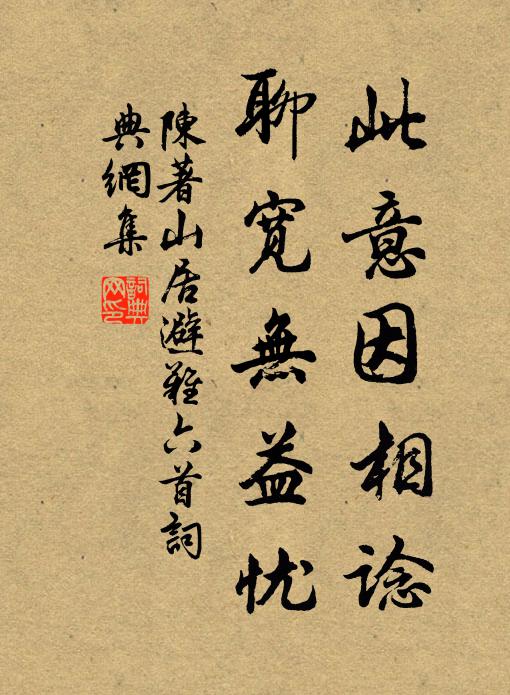 此意因相諗
聊寬無益忧
陳著山居避難六首詞
典網集
詞典网印